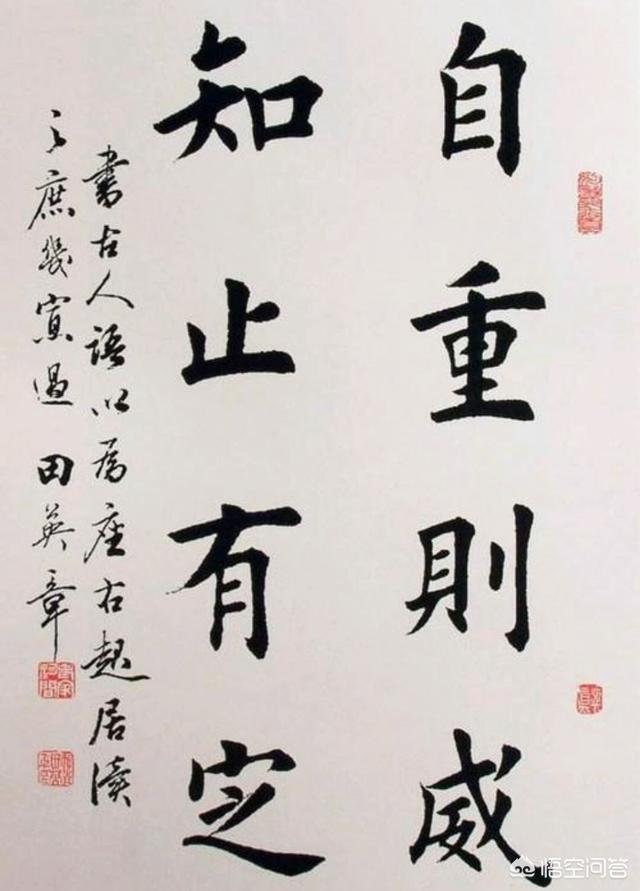 自重則威
知止有定
書古人語以為座右起居讀
之庶幾寡過 田英章
悟空问答